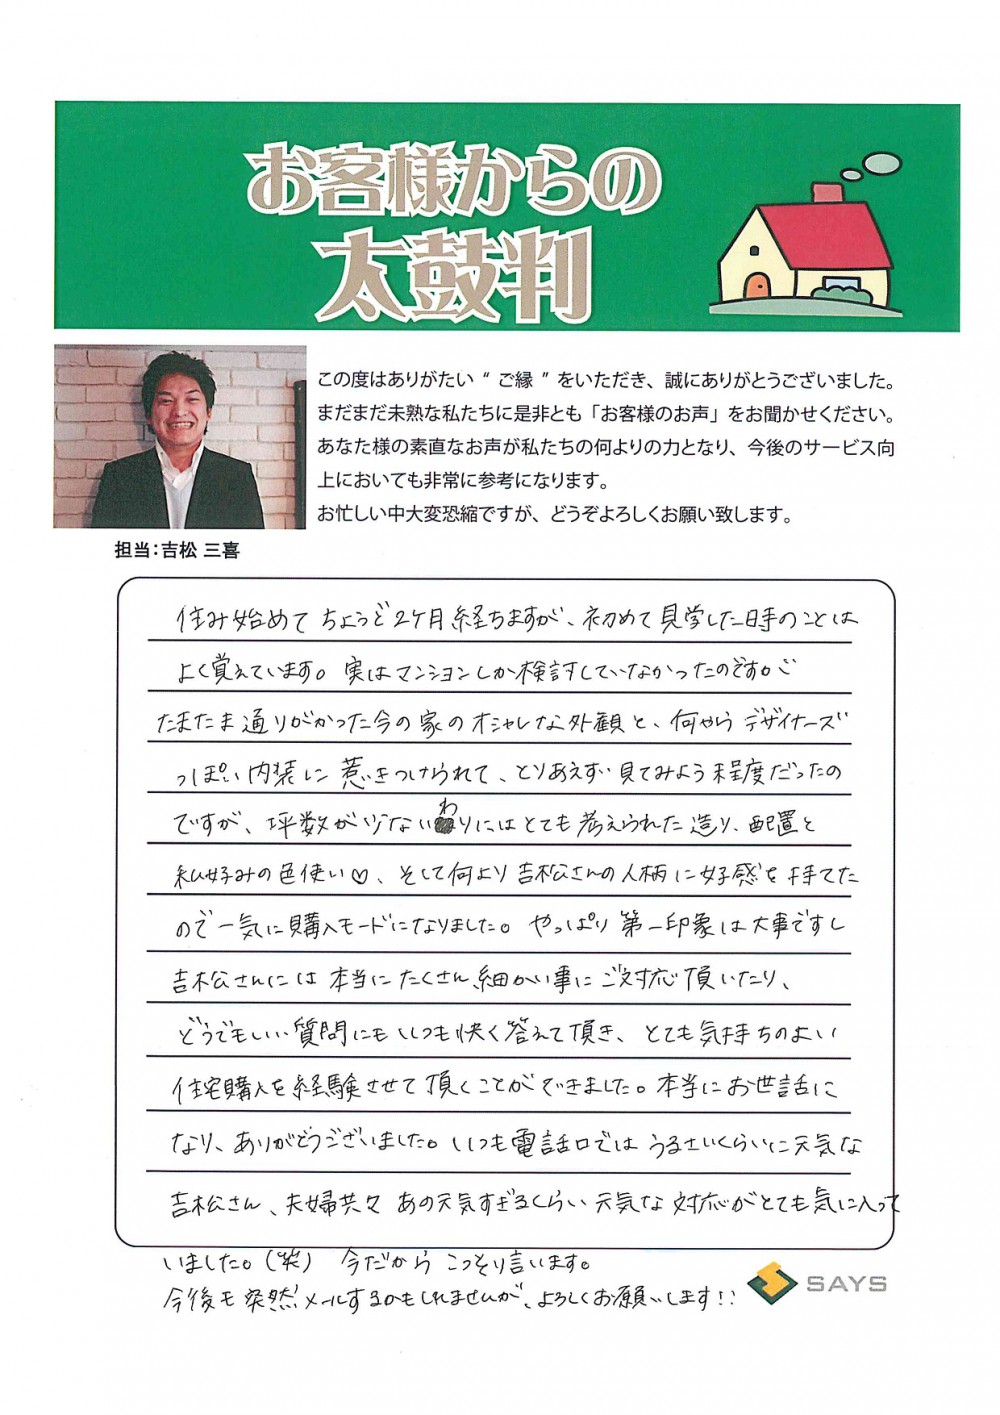 お客様からの
太鼓判
この度はありがたい“ご縁”をいただき、誠にありがとうございました。
まだまだ未熟な私たちに是非とも「お客様のお声」をお聞かせください。
あなた様の素直なお声が私たちの何よりの力となり、今後のサービス向
上においても非常に参考になります。
お忙しい中大変恐縮ですが、どうぞよろしくお願い致します。
担当：吉松 三喜
住み始めて ちょうど2ケ月経ちますが、初めて見学した時のことは
よく覚えています。実はマンションしか検討していなかったのですが
たまたま通りがかった今の家のオシャレな外観と、何やらデザイナーズ
っぽい内装に惹きつけられて、とりあえず見てみよう程度だったの
ですが、坪数が少ないわりにはとても考えられた造り、配置と
私好みの色使い♡、そして何より吉松さんの人柄に好感を持てた
ので一気に購入モードになりました。やっぱり第一印象は大事ですし
吉松さんには本当にたくさん細かい事にご対応頂いたり、
どうでもいい質問にもいつも快く答えて頂き、とても気持ちのよい
住宅購入を経験させて頂くことができました。本当にお世話に
なり、ありがとうございました。いつも電話口ではうるさいくらいに元気な
吉松さん、夫婦共々あの元気すぎるくらい元気な対応がとても気に入って
いました。(笑) 今だからこっそり言います。
今後も突然メールするかもしれませんが、よろしくお願いします!!
SAYS